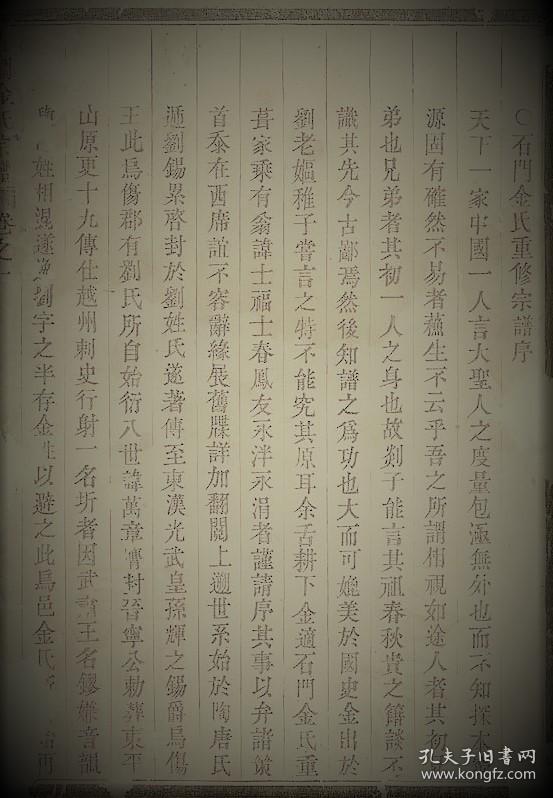 ○石門金氏重修宗譜序
天下一家中國一人言大聖人之度量包涵無外也而不知探本
源固有確然不易者蘇生不云乎吾之所謂相視如途人者其初
弟也兄弟者其初一人之身也故郯子能言其祖春秋貴之籍談不
識其先今古鄙焉然後知譜之爲功也大而可媲美於國史金出於
劉老嫗稚子嘗言之特不能究其原耳余舌耕下金適石門金氏重
葺家乘有翁諱士福士春鳳友永泮永涓者謹請序其事以弁諸簡
首忝在西席誼不容辭緣展舊牒詳加翻閱上遡世系始於陶唐氏
遞劉錫累啓封於劉姓氏遂著傳至東漢光武皇孫輝之錫爵爲傷
王此爲傷郡有劉氏所自始衍八世諱萬章 封晉寧公勅葬東平
山原夏十九傳仕越州刺史行射一名圻者因武 王名鏐嫌音韻
姓相混遂 劉字之半存金 以避之此爲邑金氏 再
卷之一
孔夫子旧书网
www.kongfz.com